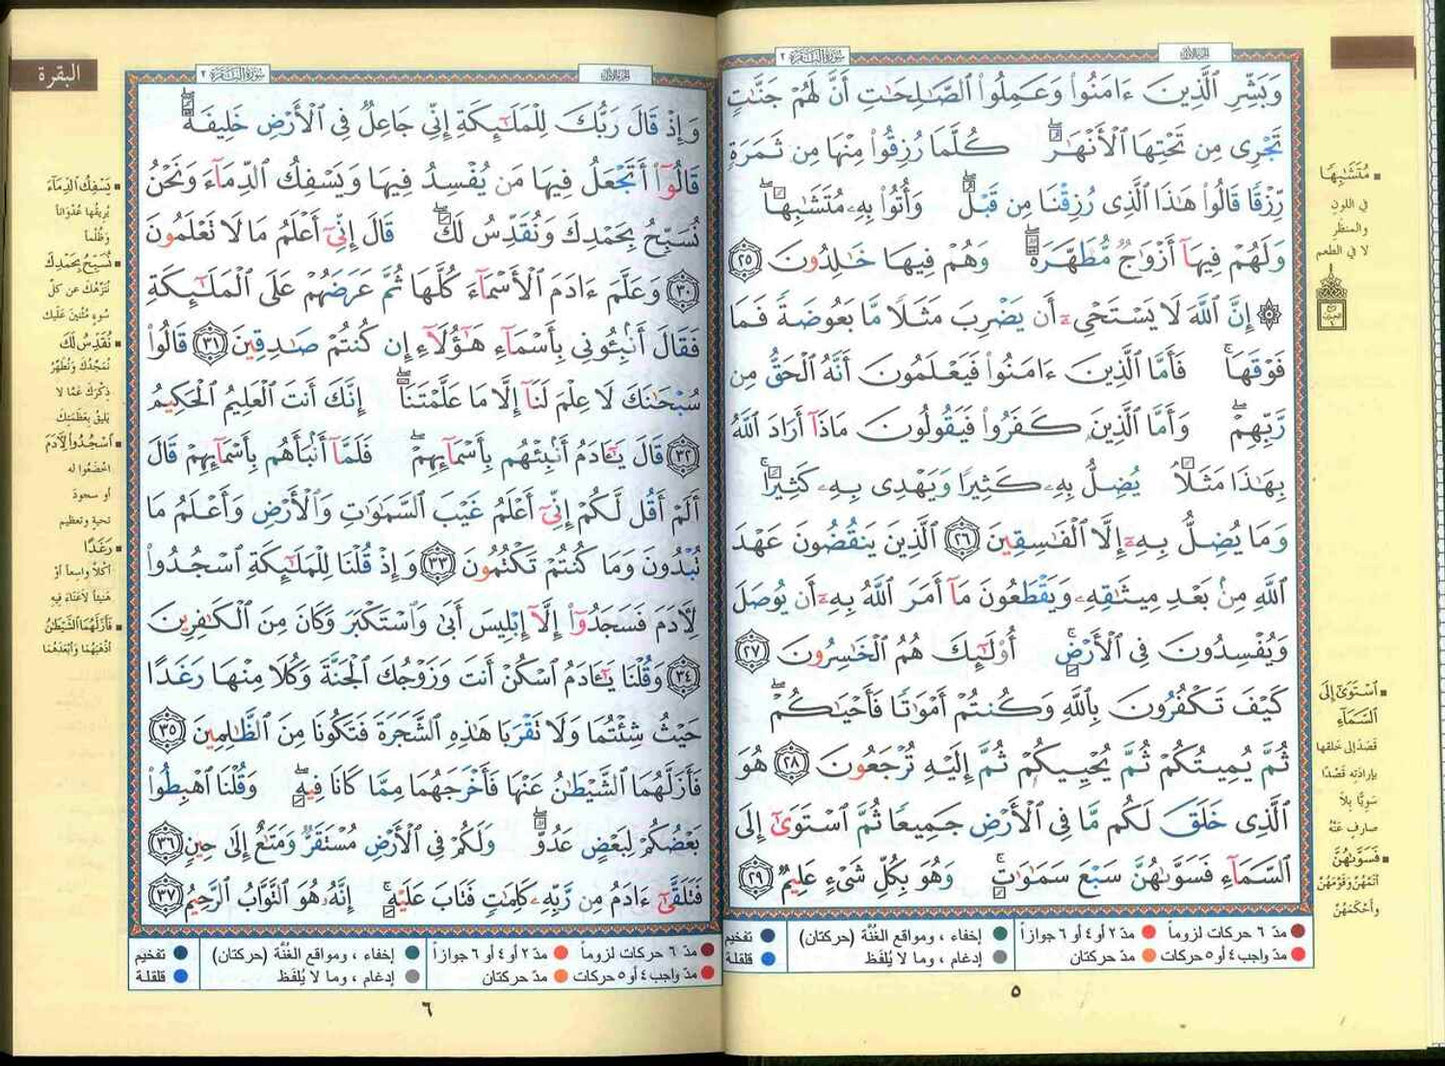 سورة البقرة ٢
الجزء الأول
وَبَشِّرِ ٱلَّذِينَ ءَامَنُوا۟ وَعَمِلُوا۟ ٱلصَّـٰلِحَـٰتِ أَنَّ لَهُمْ جَنَّـٰتٍ
تَجْرِى مِن تَحْتِهَا ٱلْأَنْهَـٰرُ ۖ كُلَّمَا رُزِقُوا۟ مِنْهَا مِن ثَمَرَةٍ
رِّزْقًا قَالُوا۟ هَـٰذَا ٱلَّذِى رُزِقْنَا مِن قَبْلُ ۖ وَأُتُوا۟ بِهِۦ مُتَشَـٰبِهًا ۖ
وَلَهُمْ فِيهَآ أَزْوَٰجٌ مُّطَهَّرَةٌ ۖ وَهُمْ فِيهَا خَـٰلِدُونَ ٢٥
۞ إِنَّ ٱللَّهَ لَا يَسْتَحْىِۦٓ أَن يَضْرِبَ مَثَلًا مَّا بَعُوضَةً فَمَا
فَوْقَهَا ۚ فَأَمَّا ٱلَّذِينَ ءَامَنُوا۟ فَيَعْلَمُونَ أَنَّهُ ٱلْحَقُّ مِن
رَّبِّهِمْ ۖ وَأَمَّا ٱلَّذِينَ كَفَرُوا۟ فَيَقُولُونَ مَاذَآ أَرَادَ ٱللَّهُ
بِهَـٰذَا مَثَلًا ۘ يُضِلُّ بِهِۦ كَثِيرًا وَيَهْدِى بِهِۦ كَثِيرًا ۚ
وَمَا يُضِلُّ بِهِۦٓ إِلَّا ٱلْفَـٰسِقِينَ ٢٦ ٱلَّذِينَ يَنقُضُونَ عَهْدَ
ٱللَّهِ مِنۢ بَعْدِ مِيثَـٰقِهِۦ وَيَقْطَعُونَ مَآ أَمَرَ ٱللَّهُ بِهِۦٓ أَن يُوصَلَ
وَيُفْسِدُونَ فِى ٱلْأَرْضِ ۚ أُو۟لَـٰٓئِكَ هُمُ ٱلْخَـٰسِرُونَ ٢٧
كَيْفَ تَكْفُرُونَ بِٱللَّهِ وَكُنتُمْ أَمْوَٰتًا فَأَحْيَـٰكُمْ ۖ
ثُمَّ يُمِيتُكُمْ ثُمَّ يُحْيِيكُمْ ثُمَّ إِلَيْهِ تُرْجَعُونَ ٢٨ هُوَ
ٱلَّذِى خَلَقَ لَكُم مَّا فِى ٱلْأَرْضِ جَمِيعًا ثُمَّ ٱسْتَوَىٰٓ إِلَى
ٱلسَّمَآءِ فَسَوَّىٰهُنَّ سَبْعَ سَمَـٰوَٰتٍ ۚ وَهُوَ بِكُلِّ شَىْءٍ عَلِيمٌ ٢٩
مُتَشَـٰبِهًا
في اللون
والمنظر
لا في الطعم
ٱسْتَوَىٰٓ إِلَى
ٱلسَّمَآءِ
قَصَدَ إلى خلقها
بإرادته قَصْدًا
سَوِيًّا بلا
صارفٍ عَنْهُ
فَسَوَّىٰهُنَّ
أتَمَّهُنَّ وقَوَّمَهُنَّ
وأَحْكَمَهُنَّ
مدّ ٦ حركات لزوماً
مدّ ٢ أو ٤ أو ٦ جوازاً
إخفاء ، ومواقع الغُنَّة (حركتان)
تفخيم
مدّ واجب ٤ أو ٥ حركات
مدّ حركتان
إدغام ، وما لا يُلفَظ
قلقلة
٥
البقرة
سورة البقرة ٢
الجزء الأول
وَإِذْ قَالَ رَبُّكَ لِلْمَلَـٰٓئِكَةِ إِنِّى جَاعِلٌ فِى ٱلْأَرْضِ خَلِيفَةً ۖ
قَالُوٓا۟ أَتَجْعَلُ فِيهَا مَن يُفْسِدُ فِيهَا وَيَسْفِكُ ٱلدِّمَآءَ وَنَحْنُ
نُسَبِّحُ بِحَمْدِكَ وَنُقَدِّسُ لَكَ ۖ قَالَ إِنِّىٓ أَعْلَمُ مَا لَا تَعْلَمُونَ
٣٠ وَعَلَّمَ ءَادَمَ ٱلْأَسْمَآءَ كُلَّهَا ثُمَّ عَرَضَهُمْ عَلَى ٱلْمَلَـٰٓئِكَةِ
فَقَالَ أَنۢبِـُٔونِى بِأَسْمَآءِ هَـٰٓؤُلَآءِ إِن كُنتُمْ صَـٰدِقِينَ ٣١ قَالُوا۟
سُبْحَـٰنَكَ لَا عِلْمَ لَنَآ إِلَّا مَا عَلَّمْتَنَآ ۖ إِنَّكَ أَنتَ ٱلْعَلِيمُ ٱلْحَكِيمُ
٣٢ قَالَ يَـٰٓـَٔادَمُ أَنۢبِئْهُم بِأَسْمَآئِهِمْ ۖ فَلَمَّآ أَنۢبَأَهُم بِأَسْمَآئِهِمْ قَالَ
أَلَمْ أَقُل لَّكُمْ إِنِّىٓ أَعْلَمُ غَيْبَ ٱلسَّمَـٰوَٰتِ وَٱلْأَرْضِ وَأَعْلَمُ مَا
تُبْدُونَ وَمَا كُنتُمْ تَكْتُمُونَ ٣٣ وَإِذْ قُلْنَا لِلْمَلَـٰٓئِكَةِ ٱسْجُدُوا۟
لِـَٔادَمَ فَسَجَدُوٓا۟ إِلَّآ إِبْلِيسَ أَبَىٰ وَٱسْتَكْبَرَ وَكَانَ مِنَ ٱلْكَـٰفِرِينَ
٣٤ وَقُلْنَا يَـٰٓـَٔادَمُ ٱسْكُنْ أَنتَ وَزَوْجُكَ ٱلْجَنَّةَ وَكُلَا مِنْهَا رَغَدًا
حَيْثُ شِئْتُمَا وَلَا تَقْرَبَا هَـٰذِهِ ٱلشَّجَرَةَ فَتَكُونَا مِنَ ٱلظَّـٰلِمِينَ ٣٥
فَأَزَلَّهُمَا ٱلشَّيْطَـٰنُ عَنْهَا فَأَخْرَجَهُمَا مِمَّا كَانَا فِيهِ ۖ وَقُلْنَا ٱهْبِطُوا۟
بَعْضُكُمْ لِبَعْضٍ عَدُوٌّ ۖ وَلَكُمْ فِى ٱلْأَرْضِ مُسْتَقَرٌّ وَمَتَـٰعٌ إِلَىٰ حِينٍ ٣٦
فَتَلَقَّىٰٓ ءَادَمُ مِن رَّبِّهِۦ كَلِمَـٰتٍ فَتَابَ عَلَيْهِ ۚ إِنَّهُۥ هُوَ ٱلتَّوَّابُ ٱلرَّحِيمُ ٣٧
يَسْفِكُ ٱلدِّمَآءَ
يُريقُها عُدْواناً
وَظُلْماً
نُسَبِّحُ بِحَمْدِكَ
نُنَزِّهُكَ عن كلّ
سُوءٍ مُثْنينَ عَلَيك
نُقَدِّسُ لَكَ
نُمَجِّدُكَ ونُطَهِّرُ
ذِكْرَكَ عَمَّا لا
يليقُ بِعَظَمَتِكَ
ٱسْجُدُوا۟ لِـَٔادَمَ
اخضَعُوا له
أو سجودَ
تحيةٍ وتعظيم
رَغَدًا
أكْلاً واسِعاً أوْ
هَنيئاً لا عَناءَ فيه
فَأَزَلَّهُمَا ٱلشَّيْطَـٰنُ
أذْهَبَهُمَا وَأبْعَدَهُمَا
مدّ ٦ حركات لزوماً
مدّ ٢ أو ٤ أو ٦ جوازاً
إخفاء ، ومواقع الغُنَّة (حركتان)
تفخيم
مدّ واجب ٤ أو ٥ حركات
مدّ حركتان
إدغام ، وما لا يُلفَظ
قلقلة
٦